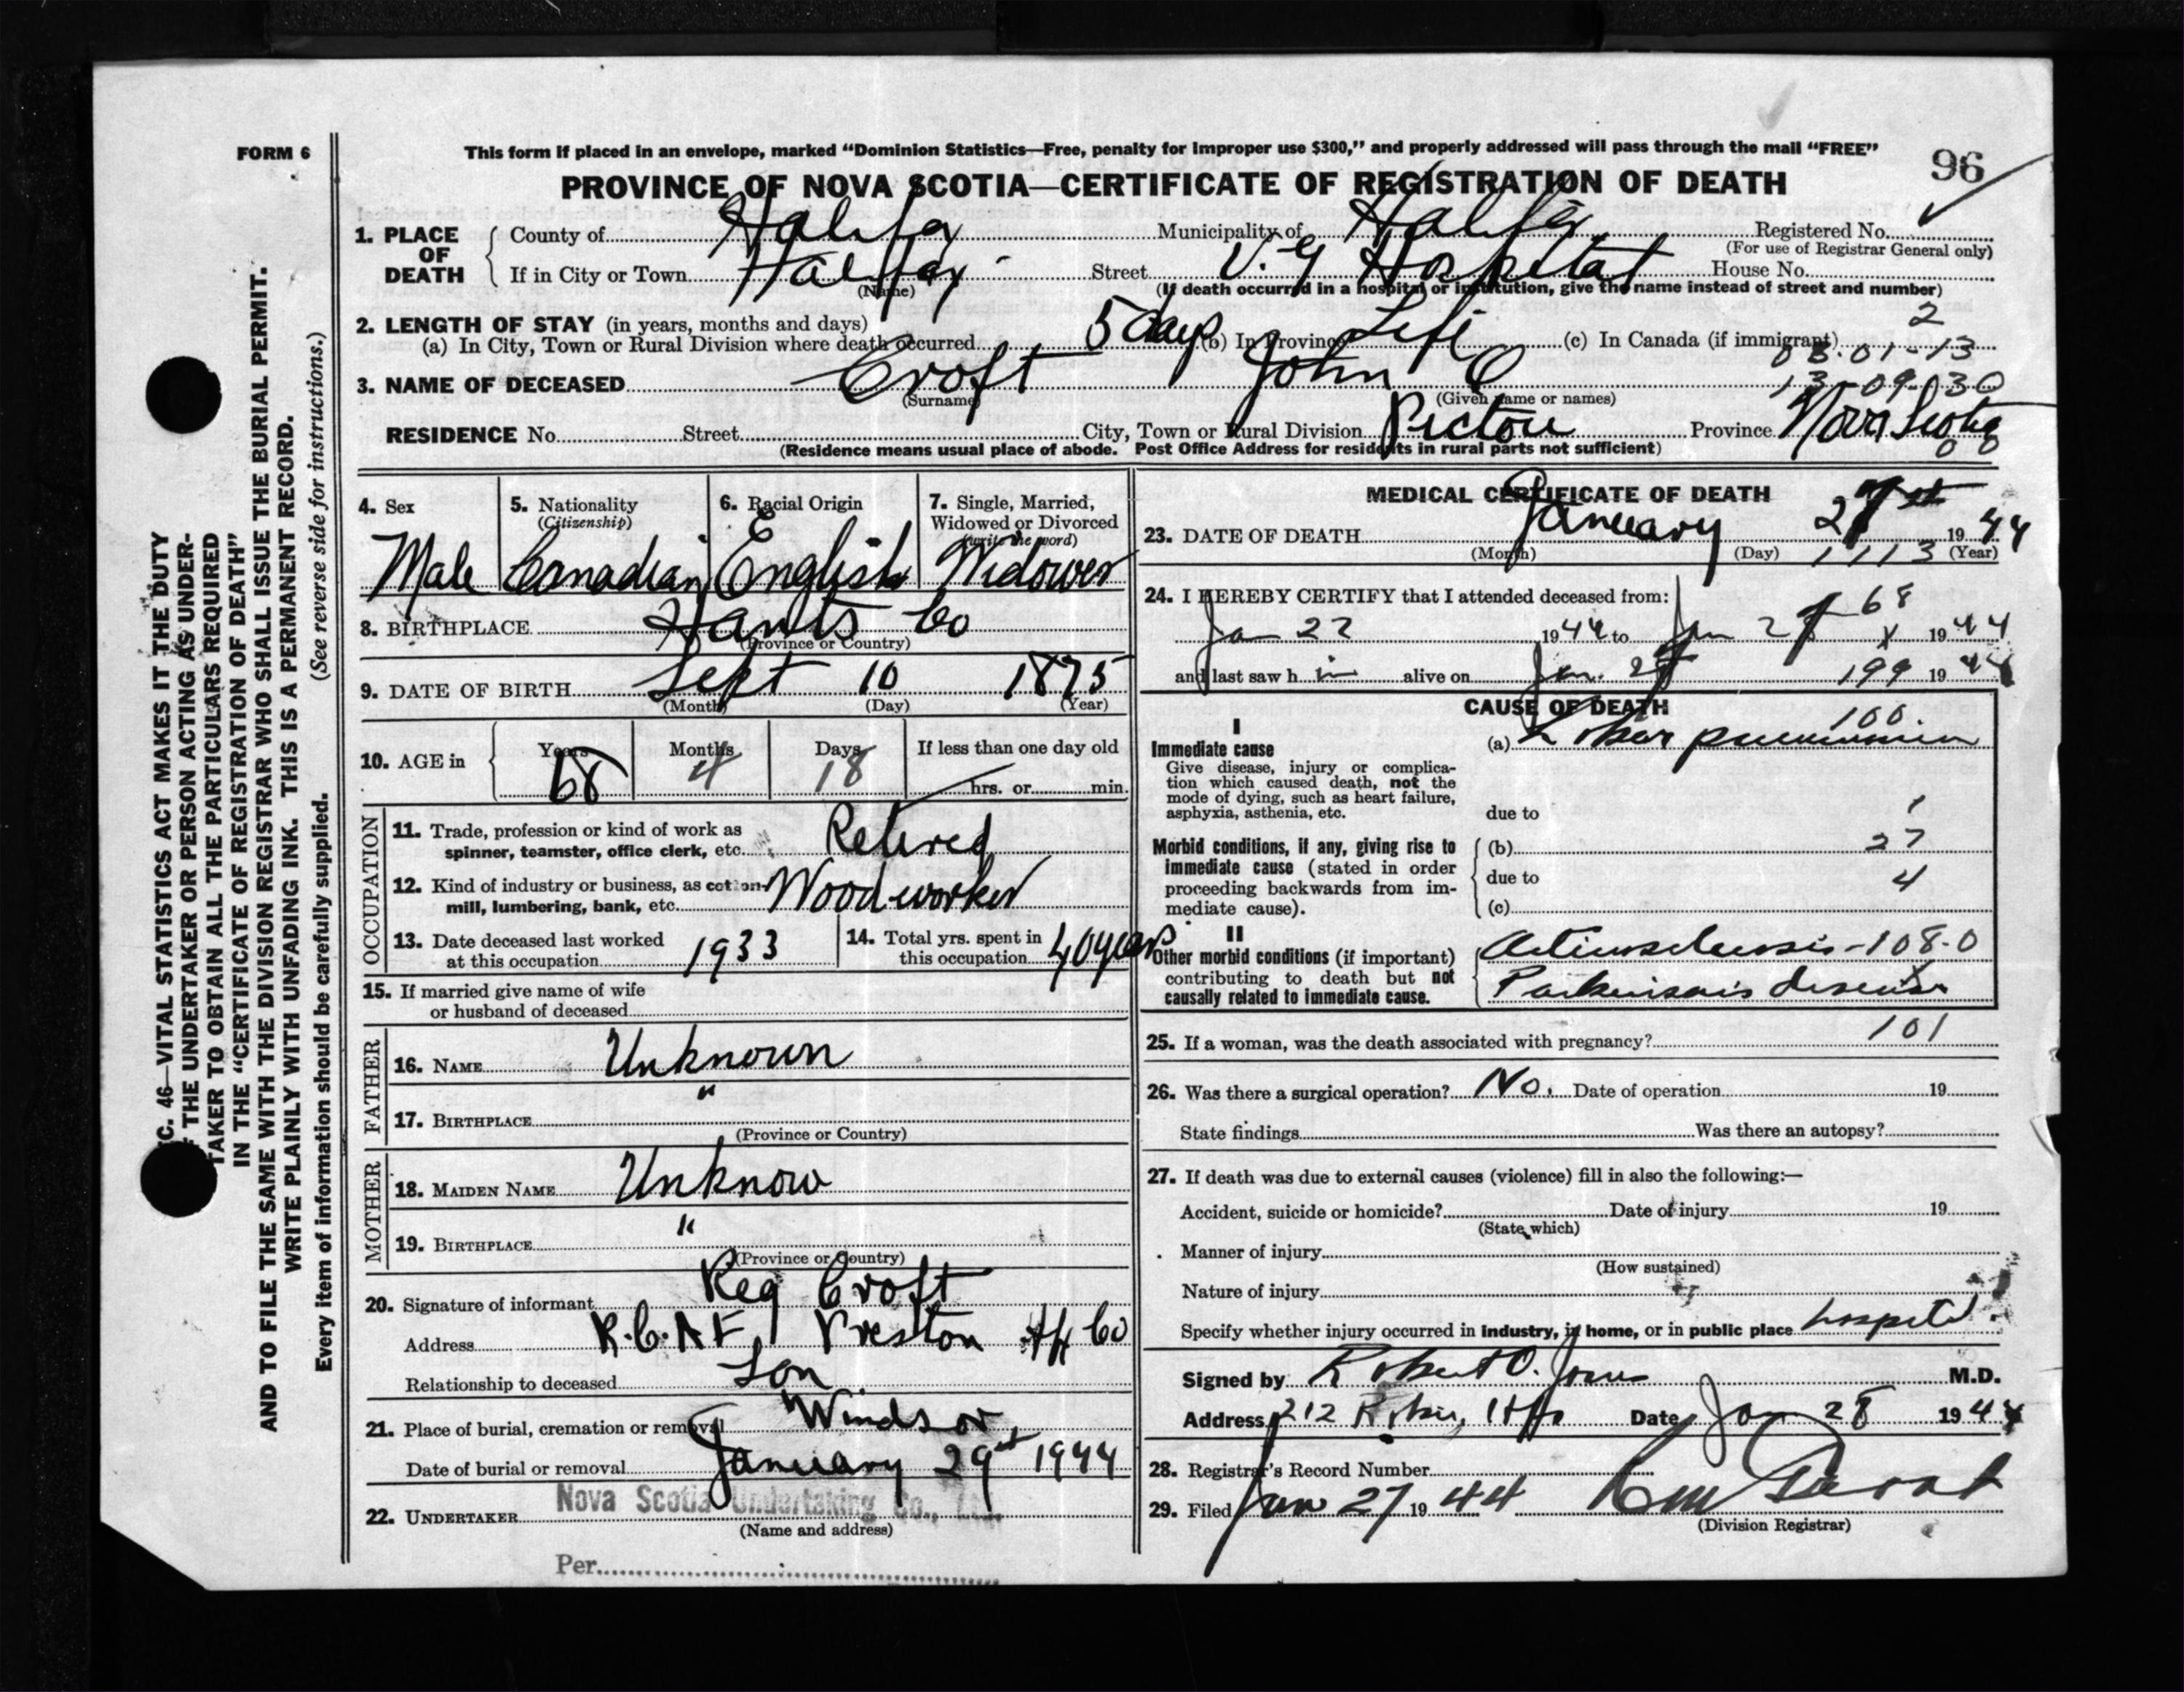 FORM 6
This form if placed in an envelope, marked “Dominion Statistics—Free, penalty for improper use $300,” and properly addressed will pass through the mail “FREE”
96
PROVINCE OF NOVA SCOTIA—CERTIFICATE OF REGISTRATION OF DEATH
1. PLACE OF DEATH
County of Halifax Municipality of Halifax Registered No.
(For use of Registrar General only)
If in City or Town Halifax Street V. G Hospital House No.
(Name) (If death occurred in a hospital or institution, give the name instead of street and number)
2. LENGTH OF STAY (in years, months and days)
2
(a) In City, Town or Rural Division where death occurred 5 days (b) In Province Life (c) In Canada (if immigrant)
03.01-13
3. NAME OF DECEASED Croft John O
13-09-030
(Surname) (Given name or names)
RESIDENCE No. Street City, Town or Rural Division Pictou Province Nova Scotia
(Residence means usual place of abode. Post Office Address for residents in rural parts not sufficient)
00
4. Sex Male
5. Nationality (Citizenship) Canadian
6. Racial Origin English
7. Single, Married, Widowed or Divorced (write the word) Widower
8. BIRTHPLACE Hants Co
(Province or Country)
9. DATE OF BIRTH Sept 10 1875
(Month) (Day) (Year)
10. AGE in Years 68 Months 4 Days 18 If less than one day old
hrs. or min.
OCCUPATION
11. Trade, profession or kind of work as spinner, teamster, office clerk, etc. Retired
12. Kind of industry or business, as cotton-mill, lumbering, bank, etc. Wood worker
13. Date deceased last worked at this occupation 1933
14. Total yrs. spent in this occupation 40 years
15. If married give name of wife
or husband of deceased
FATHER
16. NAME Unknown
17. BIRTHPLACE "
(Province or Country)
MOTHER
18. MAIDEN NAME Unknow
19. BIRTHPLACE "
(Province or Country)
20. Signature of informant Reg Croft
Address R.C.A.F Preston Hfx Co
Relationship to deceased Son
21. Place of burial, cremation or removal Windsor
Date of burial or removal January 29st 1944
22. UNDERTAKER Nova Scotia Undertaking Co., Ltd.
(Name and address)
Per
MEDICAL CERTIFICATE OF DEATH
23. DATE OF DEATH January 19 44
(Month) (Day) 1113 (Year)
24. I HEREBY CERTIFY that I attended deceased from:
68
Jan 22 1944 to Jan 1944
and last saw h im alive on Jan. 199 1944
CAUSE OF DEATH
100.
I
Immediate cause
(a) Lobar pneumonia
Give disease, injury or complication which caused death, not the mode of dying, such as heart failure, asphyxia, asthenia, etc.
due to 1
Morbid conditions, if any, giving rise to immediate cause (stated in order proceeding backwards from immediate cause).
(b) 27
due to 4
(c)
II
Other morbid conditions (if important) contributing to death but not causally related to immediate cause.
Arteriosclerosis - 108-0
Parkinson's disease
101
25. If a woman, was the death associated with pregnancy?
26. Was there a surgical operation? No. Date of operation 19
State findings Was there an autopsy?
27. If death was due to external causes (violence) fill in also the following:—
Accident, suicide or homicide? Date of injury 19
(State which)
Manner of injury
(How sustained)
Nature of injury
Specify whether injury occurred in industry, in home, or in public place hospital.
Signed by Robert O. Jones M.D.
Address 212 Date Jan 28 1944
28. Registrar's Record Number
29. Filed Jan 27 19 44
(Division Registrar)
C. 46—VITAL STATISTICS ACT MAKES IT THE DUTY
THE UNDERTAKER OR PERSON ACTING AS UNDER-
TAKER TO OBTAIN ALL THE PARTICULARS REQUIRED
IN THE “CERTIFICATE OF REGISTRATION OF DEATH”
AND TO FILE THE SAME WITH THE DIVISION REGISTRAR WHO SHALL ISSUE THE BURIAL PERMIT.
WRITE PLAINLY WITH UNFADING INK. THIS IS A PERMANENT RECORD.
Every item of information should be carefully supplied. (See reverse side for instructions.)